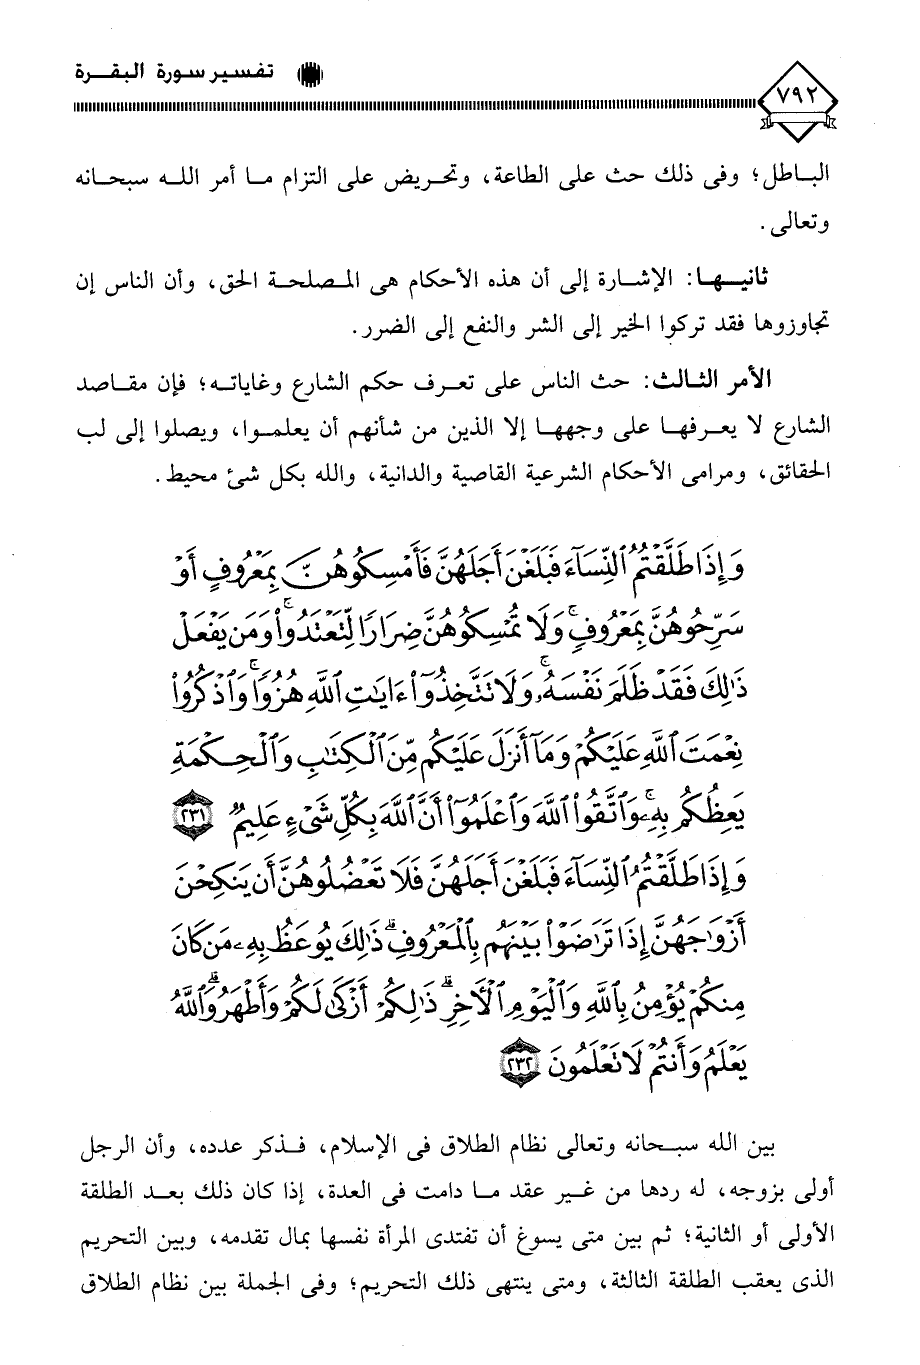 تفسير سورة البقرة
٧٩٢
الباطل؛ وفى ذلك حث على الطاعة، وتحريض على التزام ما أمر الله سبحانه
وتعالى.
ثانيها: الإشارة إلى أن هذه الأحكام هى المصلحة الحق، وأن الناس إن
تجاوزوها فقد تركوا الخير إلى الشر والنفع إلى الضرر.
الأمر الثالث: حث الناس على تعرف حكم الشارع وغاياته؛ فإن مقاصد
الشارع لا يعرفها على وجهها إلا الذين من شأنهم أن يعلموا، ويصلوا إلى لب
الحقائق، ومرامى الأحكام الشرعية القاصية والدانية، والله بكل شئ محيط.
وَإِذَا طَلَّقْتُمُ ٱلنِّسَآءَ فَبَلَغْنَ أَجَلَهُنَّ فَأَمْسِكُوهُنَّ بِمَعْرُوفٍ أَوْ
سَرِّحُوهُنَّ بِمَعْرُوفٍ ۚ وَلَا تُمْسِكُوهُنَّ ضِرَارًا لِّتَعْتَدُوا۟ ۚ وَمَن يَفْعَلْ
ذَٰلِكَ فَقَدْ ظَلَمَ نَفْسَهُۥ ۚ وَلَا تَتَّخِذُوٓا۟ ءَايَٰتِ ٱللَّهِ هُزُوًا ۚ وَٱذْكُرُوا۟
نِعْمَتَ ٱللَّهِ عَلَيْكُمْ وَمَآ أَنزَلَ عَلَيْكُم مِّنَ ٱلْكِتَٰبِ وَٱلْحِكْمَةِ
يَعِظُكُم بِهِۦ ۚ وَٱتَّقُوا۟ ٱللَّهَ وَٱعْلَمُوٓا۟ أَنَّ ٱللَّهَ بِكُلِّ شَىْءٍ عَلِيمٌ ٢٣١
وَإِذَا طَلَّقْتُمُ ٱلنِّسَآءَ فَبَلَغْنَ أَجَلَهُنَّ فَلَا تَعْضُلُوهُنَّ أَن يَنكِحْنَ
أَزْوَٰجَهُنَّ إِذَا تَرَٰضَوْا۟ بَيْنَهُم بِٱلْمَعْرُوفِ ۗ ذَٰلِكَ يُوعَظُ بِهِۦ مَن كَانَ
مِنكُمْ يُؤْمِنُ بِٱللَّهِ وَٱلْيَوْمِ ٱلْـَٔاخِرِ ۗ ذَٰلِكُمْ أَزْكَىٰ لَكُمْ وَأَطْهَرُ ۗ وَٱللَّهُ
يَعْلَمُ وَأَنتُمْ لَا تَعْلَمُونَ ٢٣٢
بين الله سبحانه وتعالى نظام الطلاق فى الإسلام، فذكر عدده، وأن الرجل
أولى بزوجه، له ردها من غير عقد ما دامت فى العدة، إذا كان ذلك بعد الطلقة
الأولى أو الثانية؛ ثم بين متى يسوغ أن تفتدى المرأة نفسها بمال تقدمه، وبين التحريم
الذى يعقب الطلقة الثالثة، ومتى ينتهى ذلك التحريم؛ وفى الجملة بين نظام الطلاق